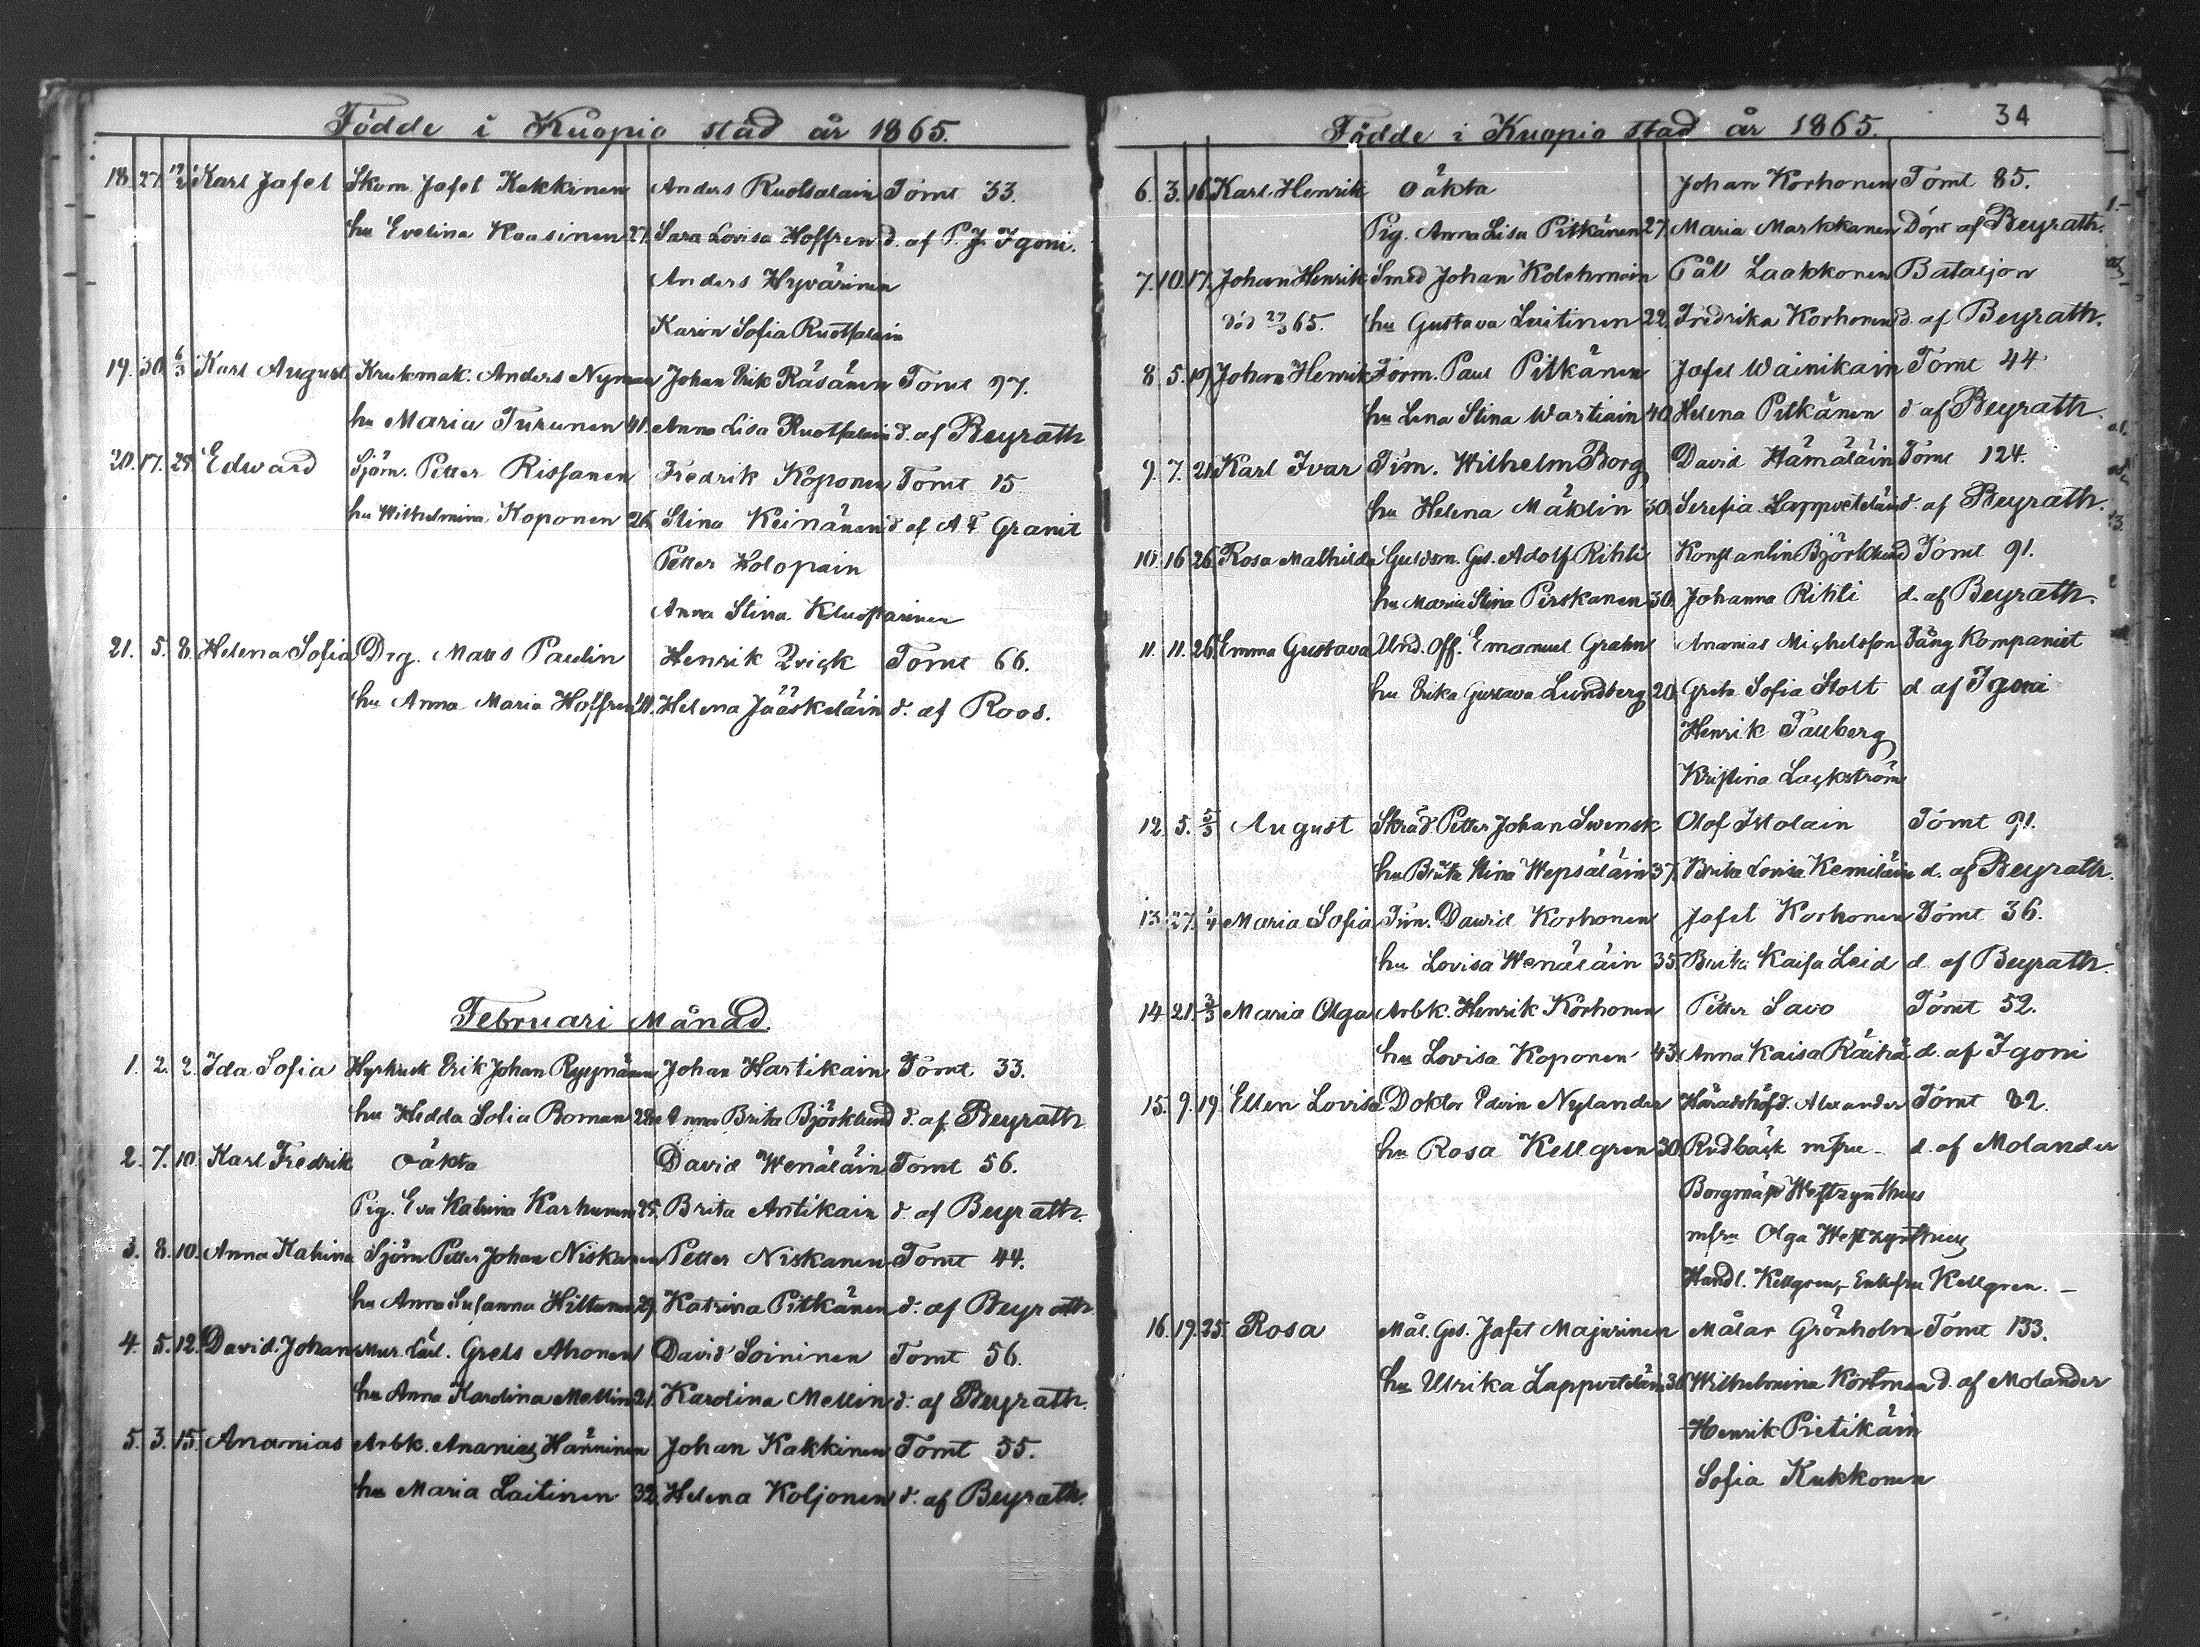 Födde i Kuopio stad år 1865.
18. 27. 12/2 Karl Jafet Skom. Jafet Kakkinen Anders Ruotsalain Tomt 33.
hu Evelina Kaasinen 27. Sara Lovisa Hoffren d. af P. J. Igoni.
Anders Hyvärinen
Karin Sofia Ruotsalain
19. 30. 6/3 Karl August Krukmak. Anders Nyman Johan Erik Räsänen Tomt 97.
hu Maria Turunen 41. Anna Lisa Ruotsalain d. af Beyrath
20. 17. 25. Edward Sjöm. Petter Rissanen Fredrik Koponen Tomt 15
hu Wilhelmina Koponen 26. Stina Keinänen d af A F Granit
Petter Holopain
Anna Stina
21. 5. 8. Helena Sofia Drg. Matts Paulin Henrik Qvick Tomt 66.
hu Anna Maria Hoffren 41. Helena Jääskeläin d. af Roos.
Februari Månad.
1. 2. 2. Ida Sofia Erik Johan Ryynänen Johan Hartikain Tomt 33.
hu Hedda Sofia Roman 28. Anna Brita Björklund d. af Beyrath
2. 7. 10. Karl Fredrik oäkta David Wenäläin Tomt 56.
Pig. Eva Katrina Karhunen 25. Brita Antikain d. af Beyrath.
3. 8. 10. Anna Katrina Sjöm. Petter Johan Niskanen Petter Niskanen Tomt 44.
hu Anna Susanna Hiltunen 29. Katrina Pitkänen d. af Beyrath
4. 5. 12. David Johan Mur. Lärl. Grels Ahonen David Soininen Tomt 56.
hu Anna Karolina Mellin 21. Karolina Mellin d. af Beyrath.
5. 3. 15. Ananias Arbk. Ananias Hänninen Johan Kakkinen Tomt 55.
hu Maria Laitinen 32. Helena Koljonen d. af Beyrath.
Födde i Kuopio stad år 1865. 34
6. 3. 16. Karl Henrik oäkta Johan Korhonen Tomt 85.
Pig. Anna Lisa Pitkänen 27. Maria Markkanen Döpt af Beyrath.
7. 10. 17. Johan Henrik Smed Johan Kolehmain Påll Laakkonen Bataljon
död 27/3 65. hu Gustava Luitinen 22. Fredrika Korhonen d. af Beyrath.
8. 5. 19. Johan Henrik Form. Paul Pitkänen Jafet Wainikain Tomt 44
hu Lena Stina Wartiain 40. Helena Pitkänen d af Beyrath.
9. 7. 21. Karl Ivar Tim. Wilhelm Borg David Hämäläin Tomt 124.
hu Helena Mäklin 30. Serefia Lappveteläin d. af Beyrath.
10. 16 26. Rosa Mathilda Guldsm. Ges. Adolf Rihli Konstantin Björklund Tomt 91.
hu Maria Stina Pirskanen 30. Johanna Rihli d. af Beyrath.
11. 11. 26. Emma Gustava Und. Off. Emanuel Grahn Ananias Michelsson Fång Kompaniet
hu Erika Gustava Lundberg 20. Greta Sofia Stolt d af Igoni
Henrik Tallberg
Kristina Lackström
12. 5. 5/3 August Skräd. Petter Johan Swensk Olof Itkolain Tomt 91.
hu Brita Stina Wepsäläin 37. Brita Lovisa Kemiläin d. af Beyrath.
13. 27. 1/4 Maria Sofia Tim. Dawid Korhonen Jafet Korhonen Tomt 36.
hu Lovisa Wenäläin 35. Brita Kaisa Leid d. af Beyrath.
14 21. 3/3 Maria Olga Arbk. Henrik Korhonen Petter Savo Tomt 52.
hu Lovisa Koponen 43. Anna Kaisa Räihä d. af Igoni
15. 9. 19. Ellen Lovisa Doktor Edvin Nylander Häradshöfd. Alexander Tomt 82.
hu Rosa Kellgren 30. Rudbäck mfru - d. af Molander
Borgmäst Westzynthius
mfru Olga Westzynthius
Handl. Kellgren, Enkefru Kellgren. -
16. 19. 25. Rosa Mål. Ges. Jafet Majurinen Målar Grönholm Tomt 133.
hu Ulrika Lappveteläin 36. Wilhelmina Kortman d. af Molander
Henrik Pietikäin
Sofia Kukkonen